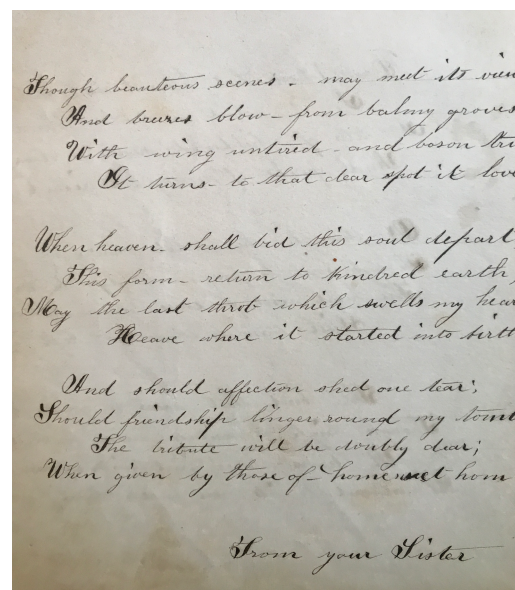 Though beauteous scenes - may meet its view
And breezes blow - from balmy groves
With wing untired - and boson tru
It turns - to that dear spot it love
When heaven - shall bid this soul depart
This form - return to kindred earth,
May the last throb which swells my hear
Heave where it started into birt
And should affection shed one tear;
Should friendship linger round my tomb
The tribute will be doubly dear;
When given by those of - home sweet hom
From your Sister